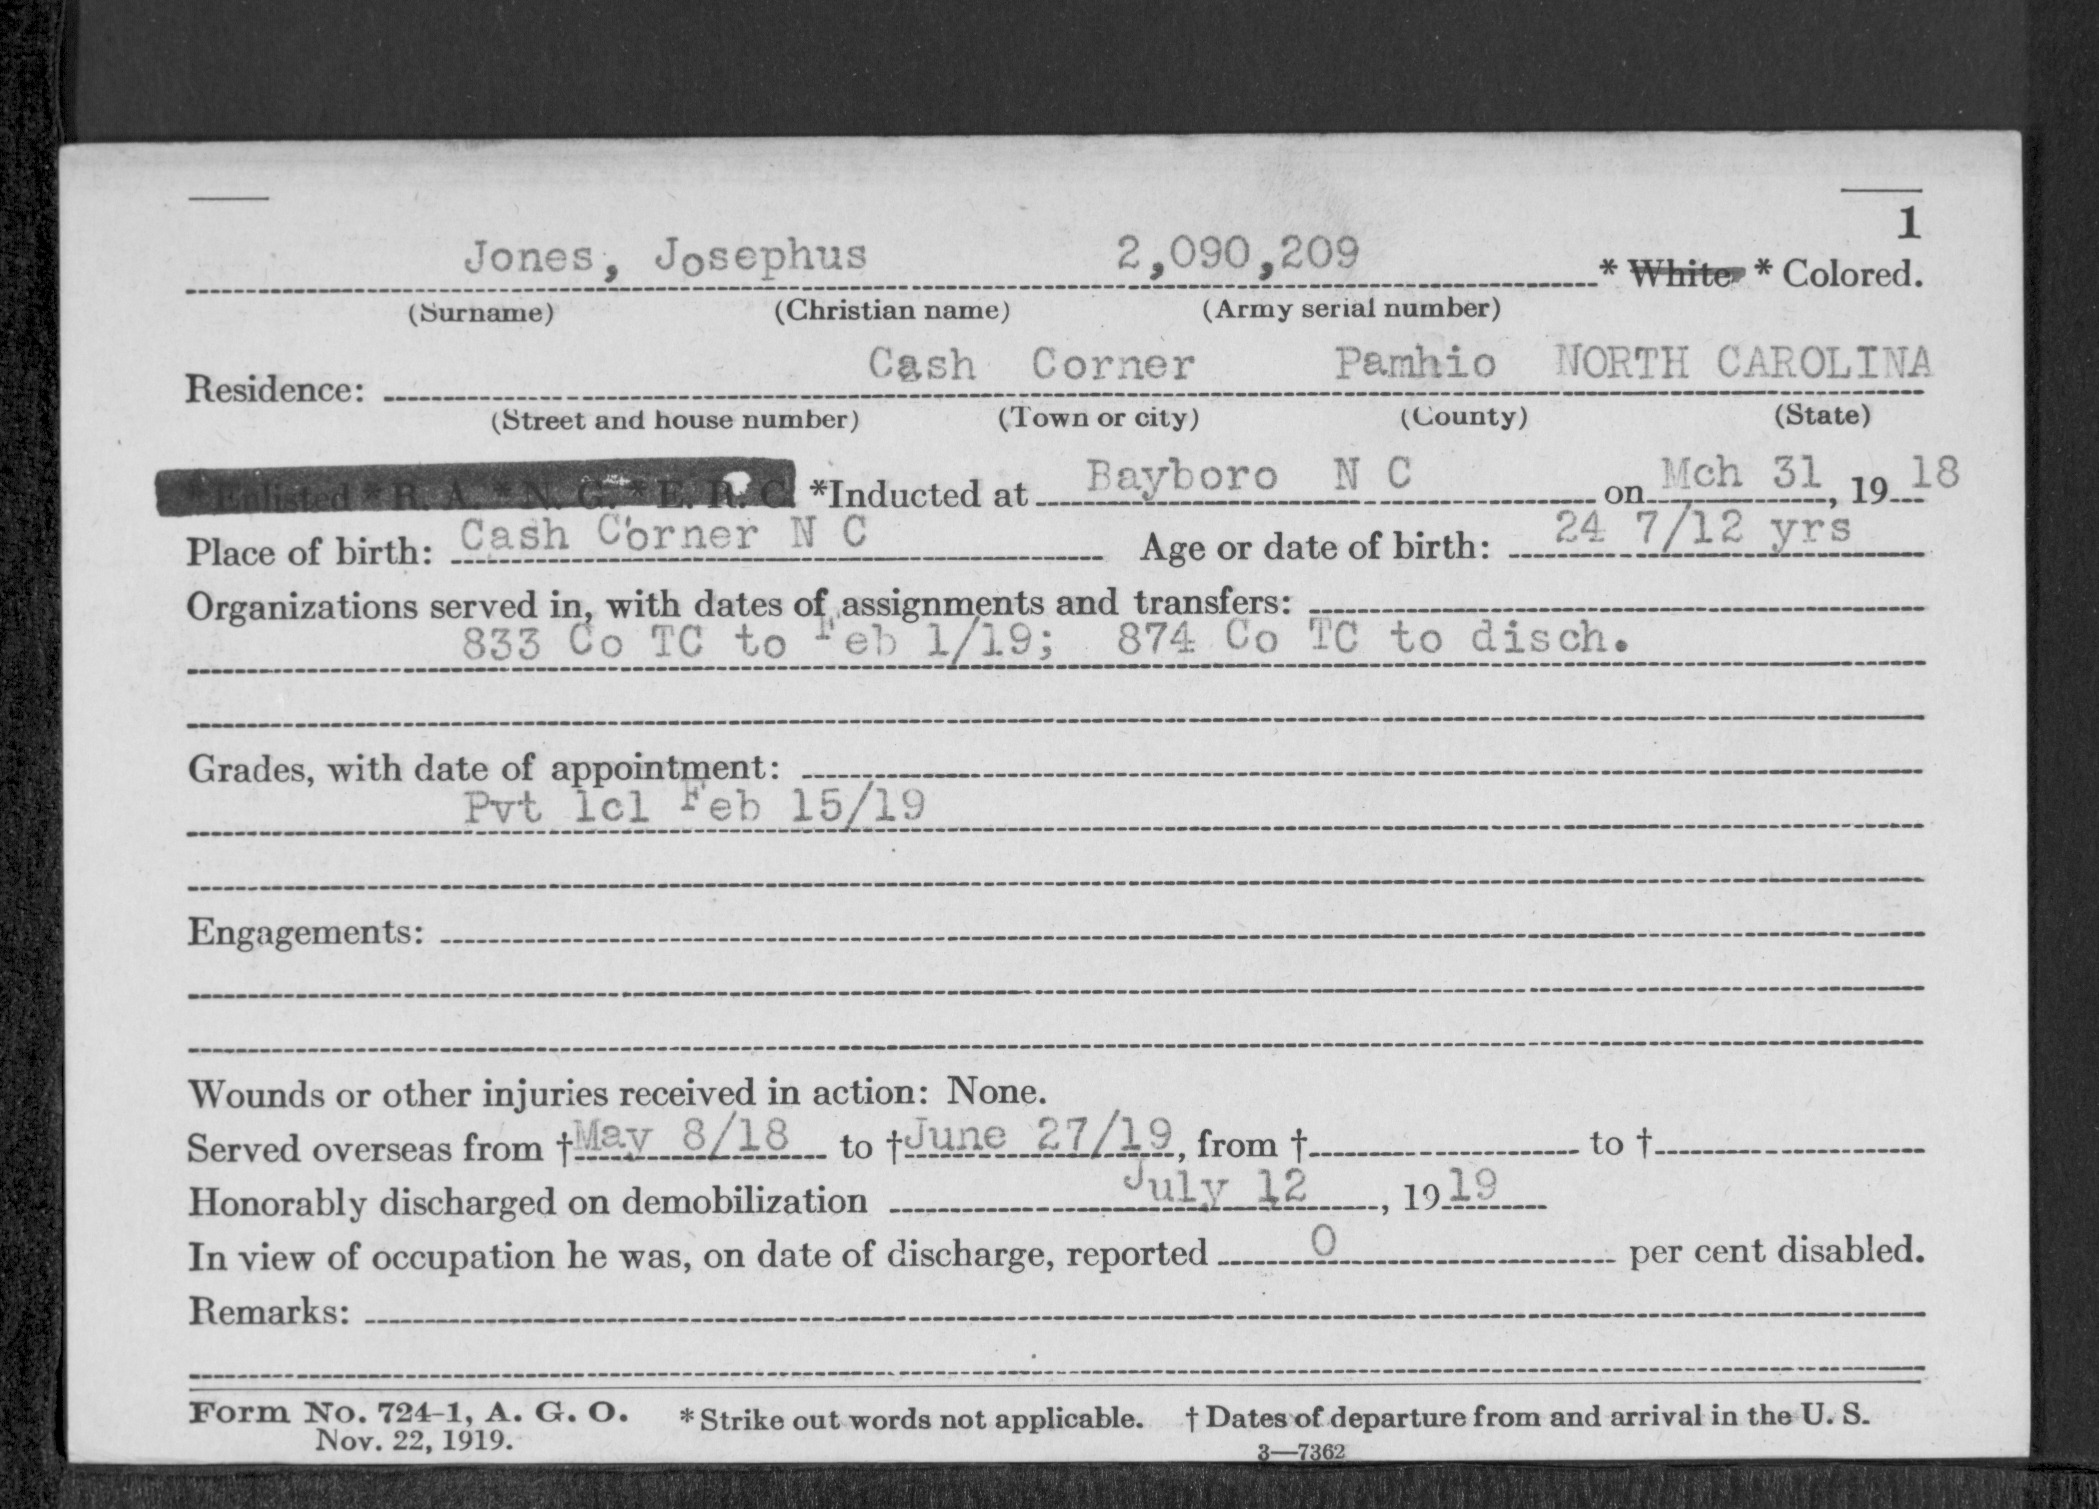 1
Jones, Josephus 2,090,209 * White * Colored.
(Surname) (Christian name) (Army serial number)
Residence: Cash Corner Pamhio NORTH CAROLINA
(Street and house number) (Town or city) (County) (State)
* Enlisted * R. A. * N. G. * E. R. C. *Inducted at Bayboro N C on Mch 31, 19 18
Place of birth: Cash Corner N C Age or date of birth: 24 7/12 yrs
Organizations served in, with dates of assignments and transfers:
833 Co TC to Feb 1/19; 874 Co TC to disch.
Grades, with date of appointment:
Pvt 1cl Feb 15/19
Engagements:
Wounds or other injuries received in action: None.
Served overseas from † May 8/18 to † June 27/19, from † to †
Honorably discharged on demobilization July 12, 19 19
In view of occupation he was, on date of discharge, reported 0 per cent disabled.
Remarks:
Form No. 724-1, A. G. O. * Strike out words not applicable. † Dates of departure from and arrival in the U. S.
Nov. 22, 1919. 3—7362